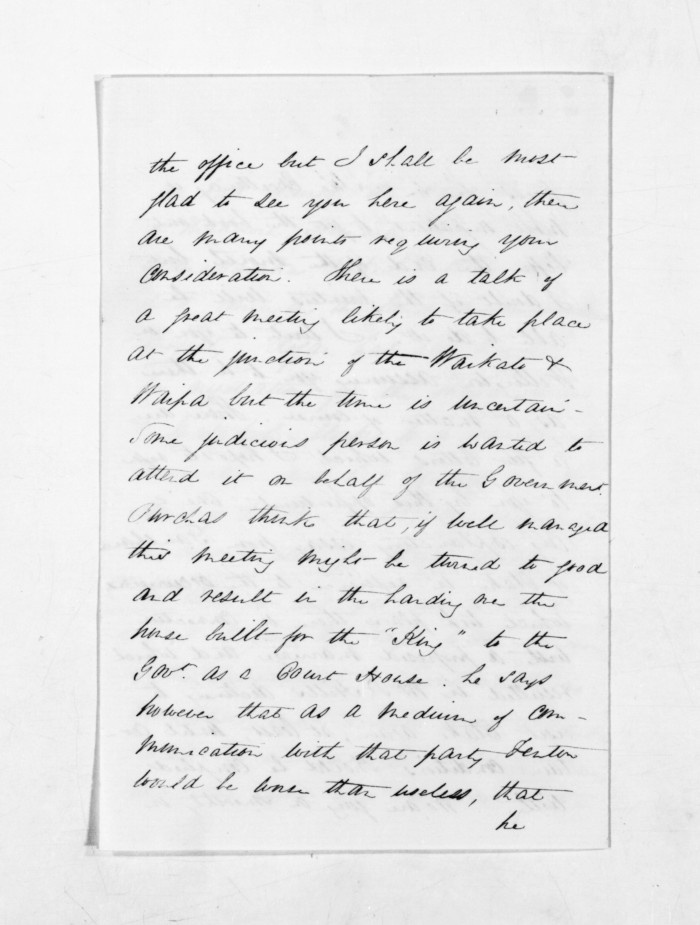 the office but I shall be most
glad to see you here again, there
are many points requiring your
consideration. There is a talk of
a great meeting likely to take place
at the junction of the Waikato &
Waipa but the time is uncertain -
Some judicious person is wanted to
attend it on behalf of the Government.
Purchas think that, if well managed
this meeting might be turned to good
and result in the handing over the
house built for the "King" to the
Govt. as a Court House. he says
however that as a medium of com-
munication with that party Fenton
would be worse than useless, that
he